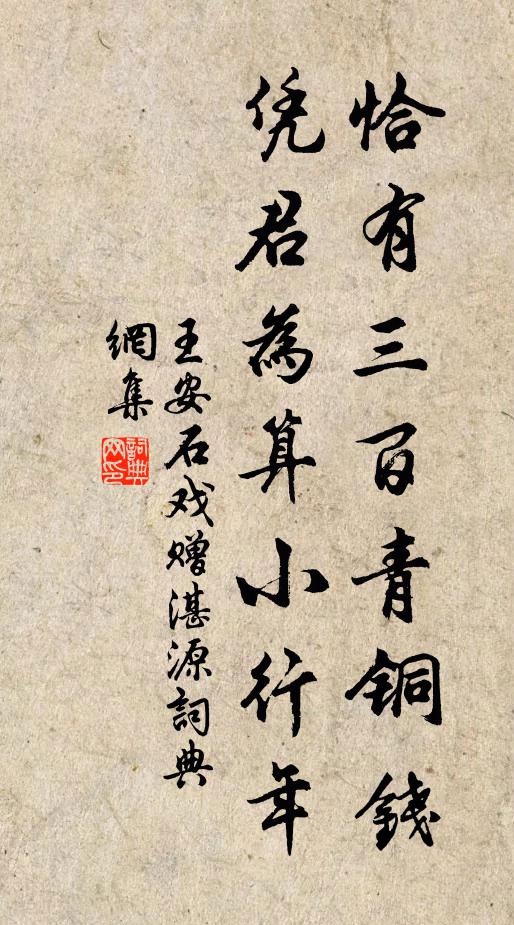 恰有三百青铜錢
凭君為算小行年
王安石戏赠湛源詞典
網集
詞典
网印